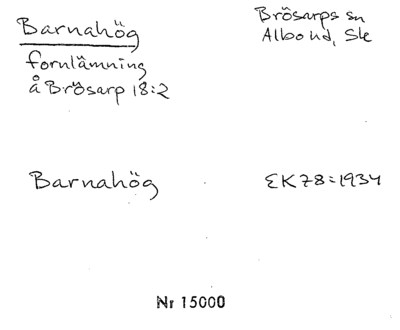 Barnahög
fornlämning
å Brösarp 18:2
Brösarps sn
Albo hd, Sk
Barnahög
EK78:1934
Nr 15000